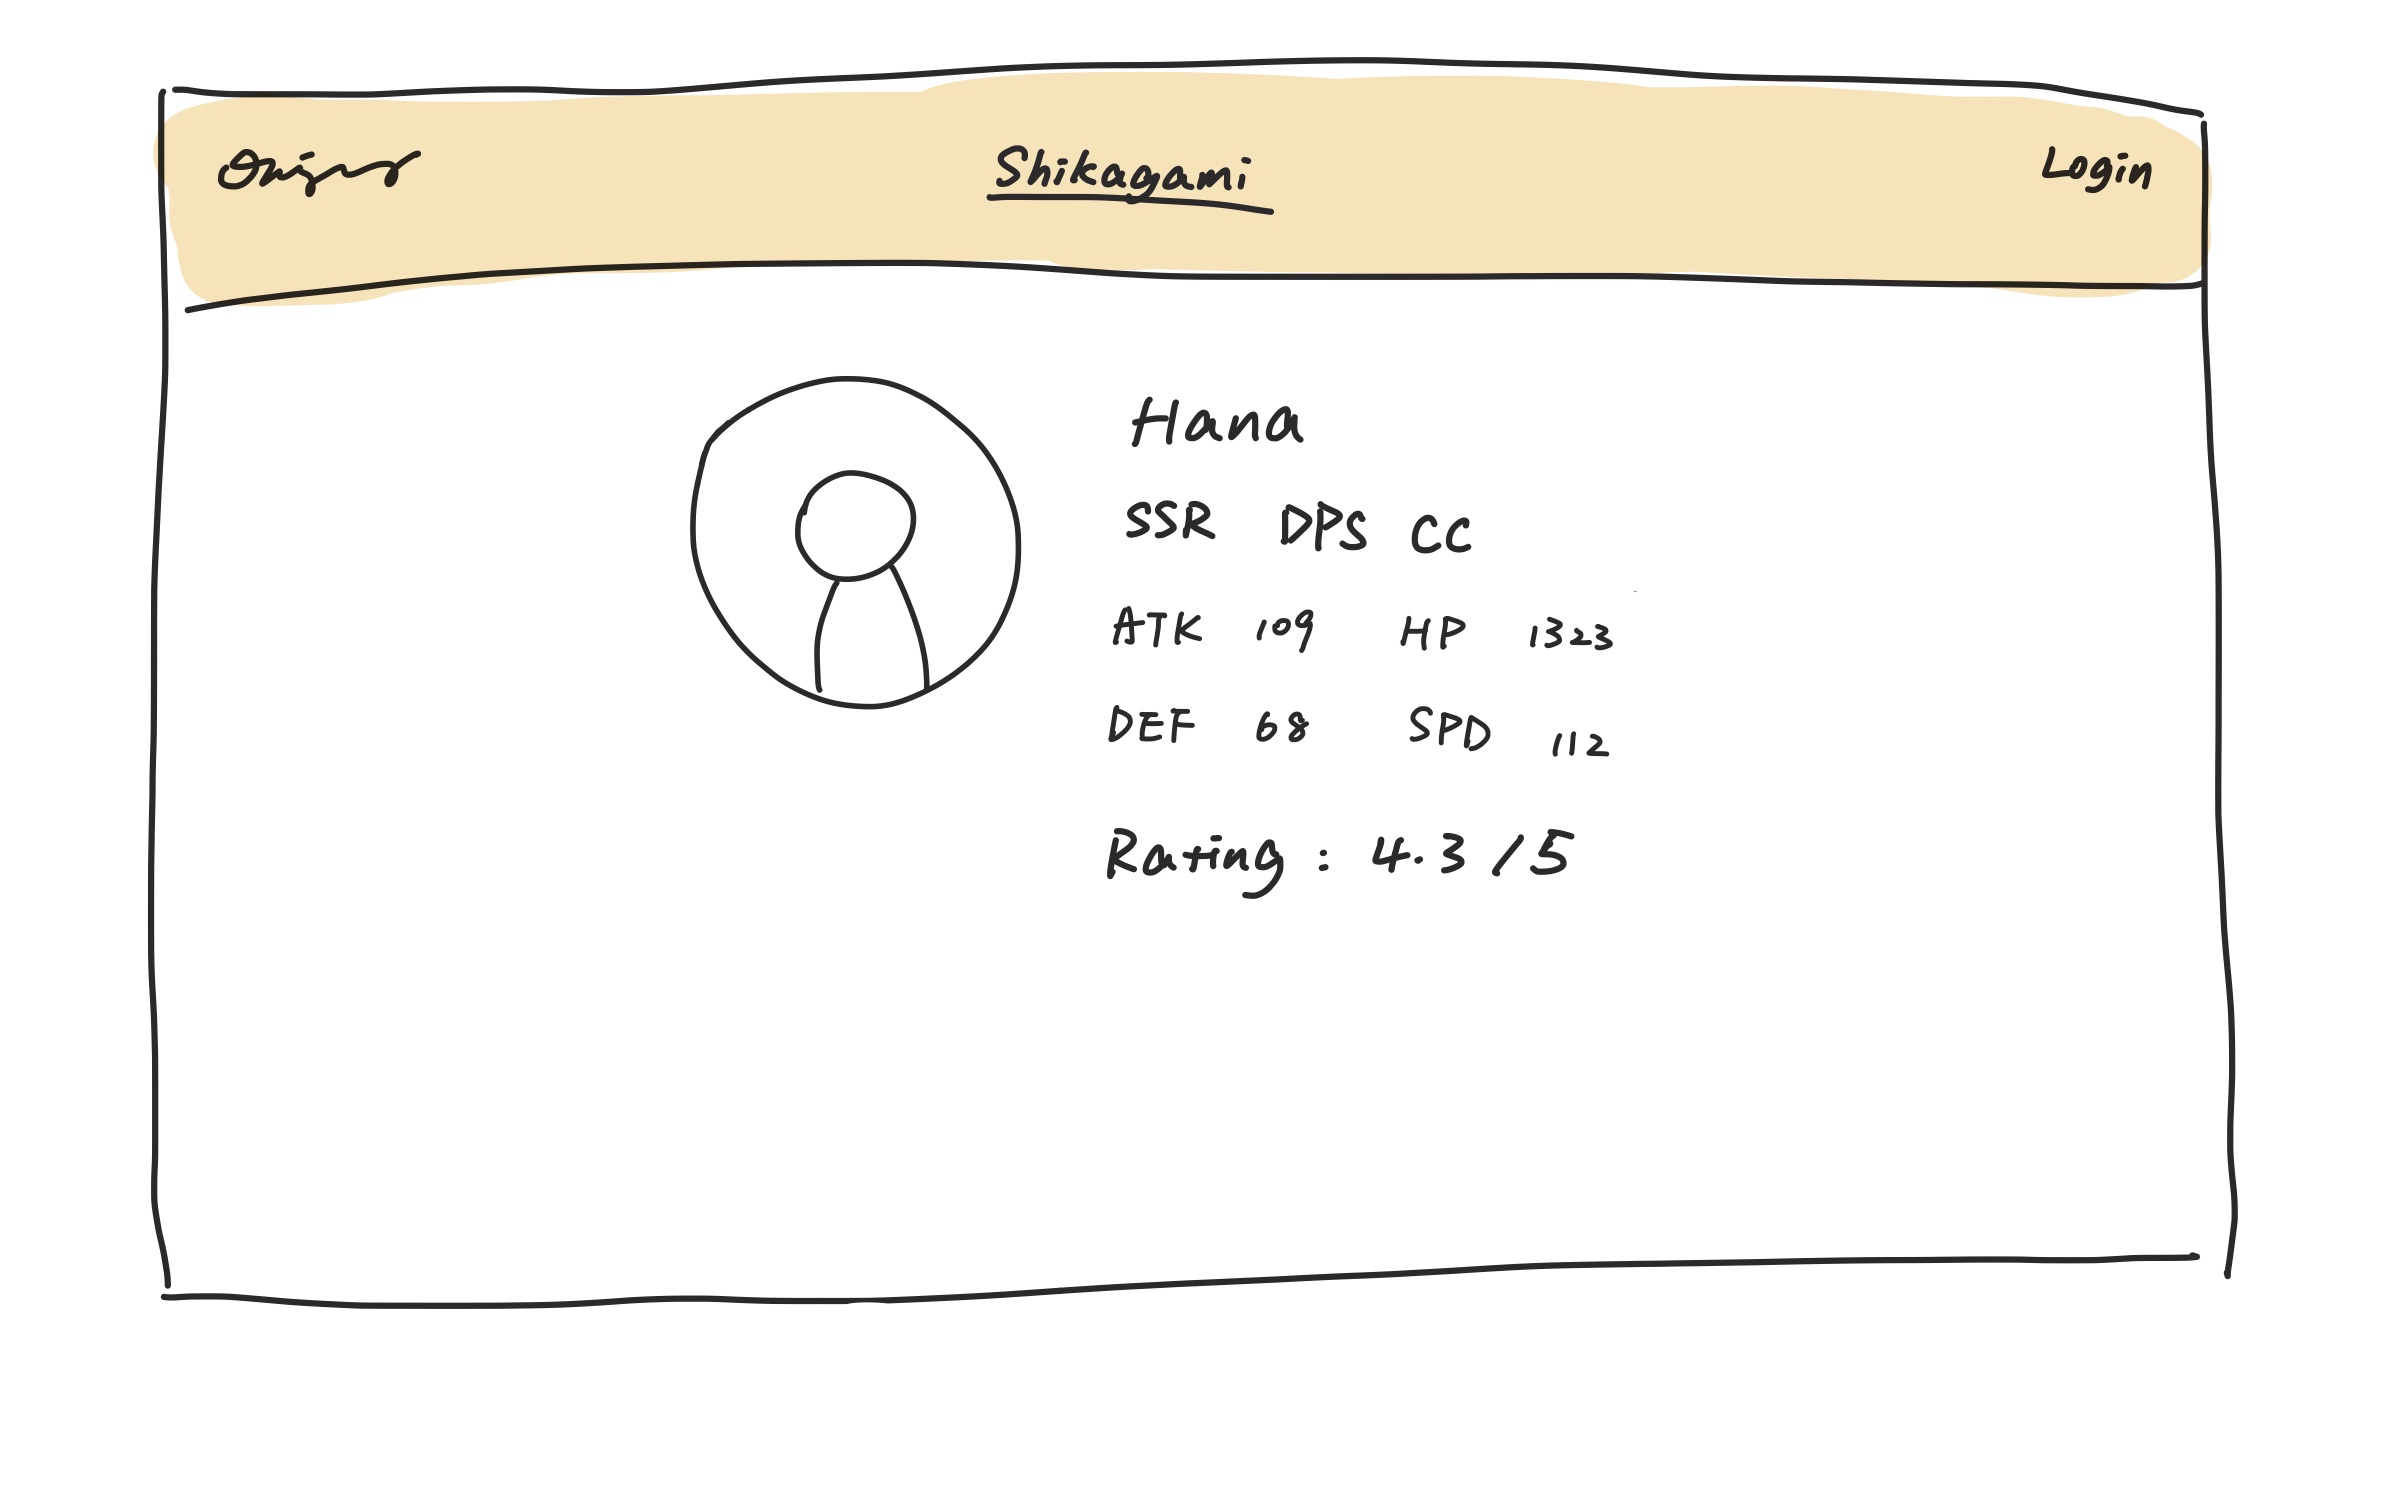 Shikagami Login
Hana
SSR DPS CC
ATK 109 HP 1323
DEF 68 SPD 112
Rating : 4.3 / 5